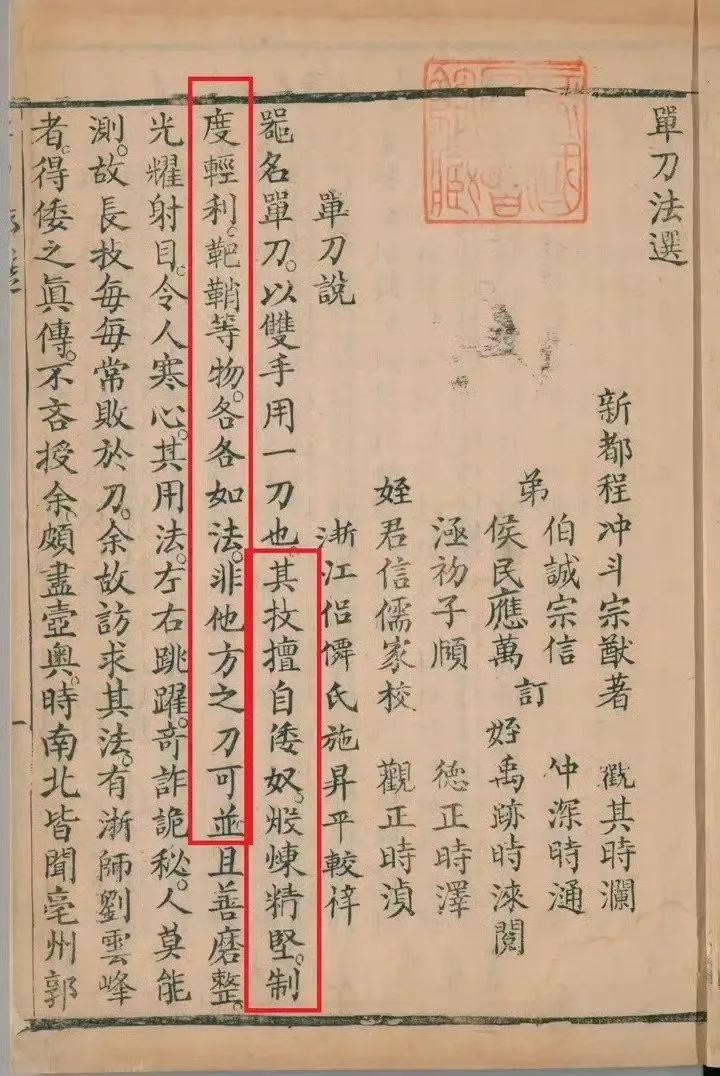 單刀法選
新都程冲斗宗猷著 其時瀾
弟 伯誠宗信 訂 仲深時涌
侯民應萬 姪禹跡時淶閱
涵初子頤 德正時澤
姪君信儒家校 觀正時湞
浙江侶氏施昇平較梓
單刀說
器名單刀。以雙手用一刀也。其技擅自倭奴。煅煉精堅。制
度輕利。靶鞘等物。各各如法。非他方之刀可並且善磨整。
光耀射目。令人寒心。其用法。左右跳躍。奇詐詭秘。人莫能
測。故長技每每常敗於刀。余故訪求其法。有浙師劉雲峰
者。得倭之眞傳。不吝授余。頗盡壺奧。時南北皆聞亳州郭